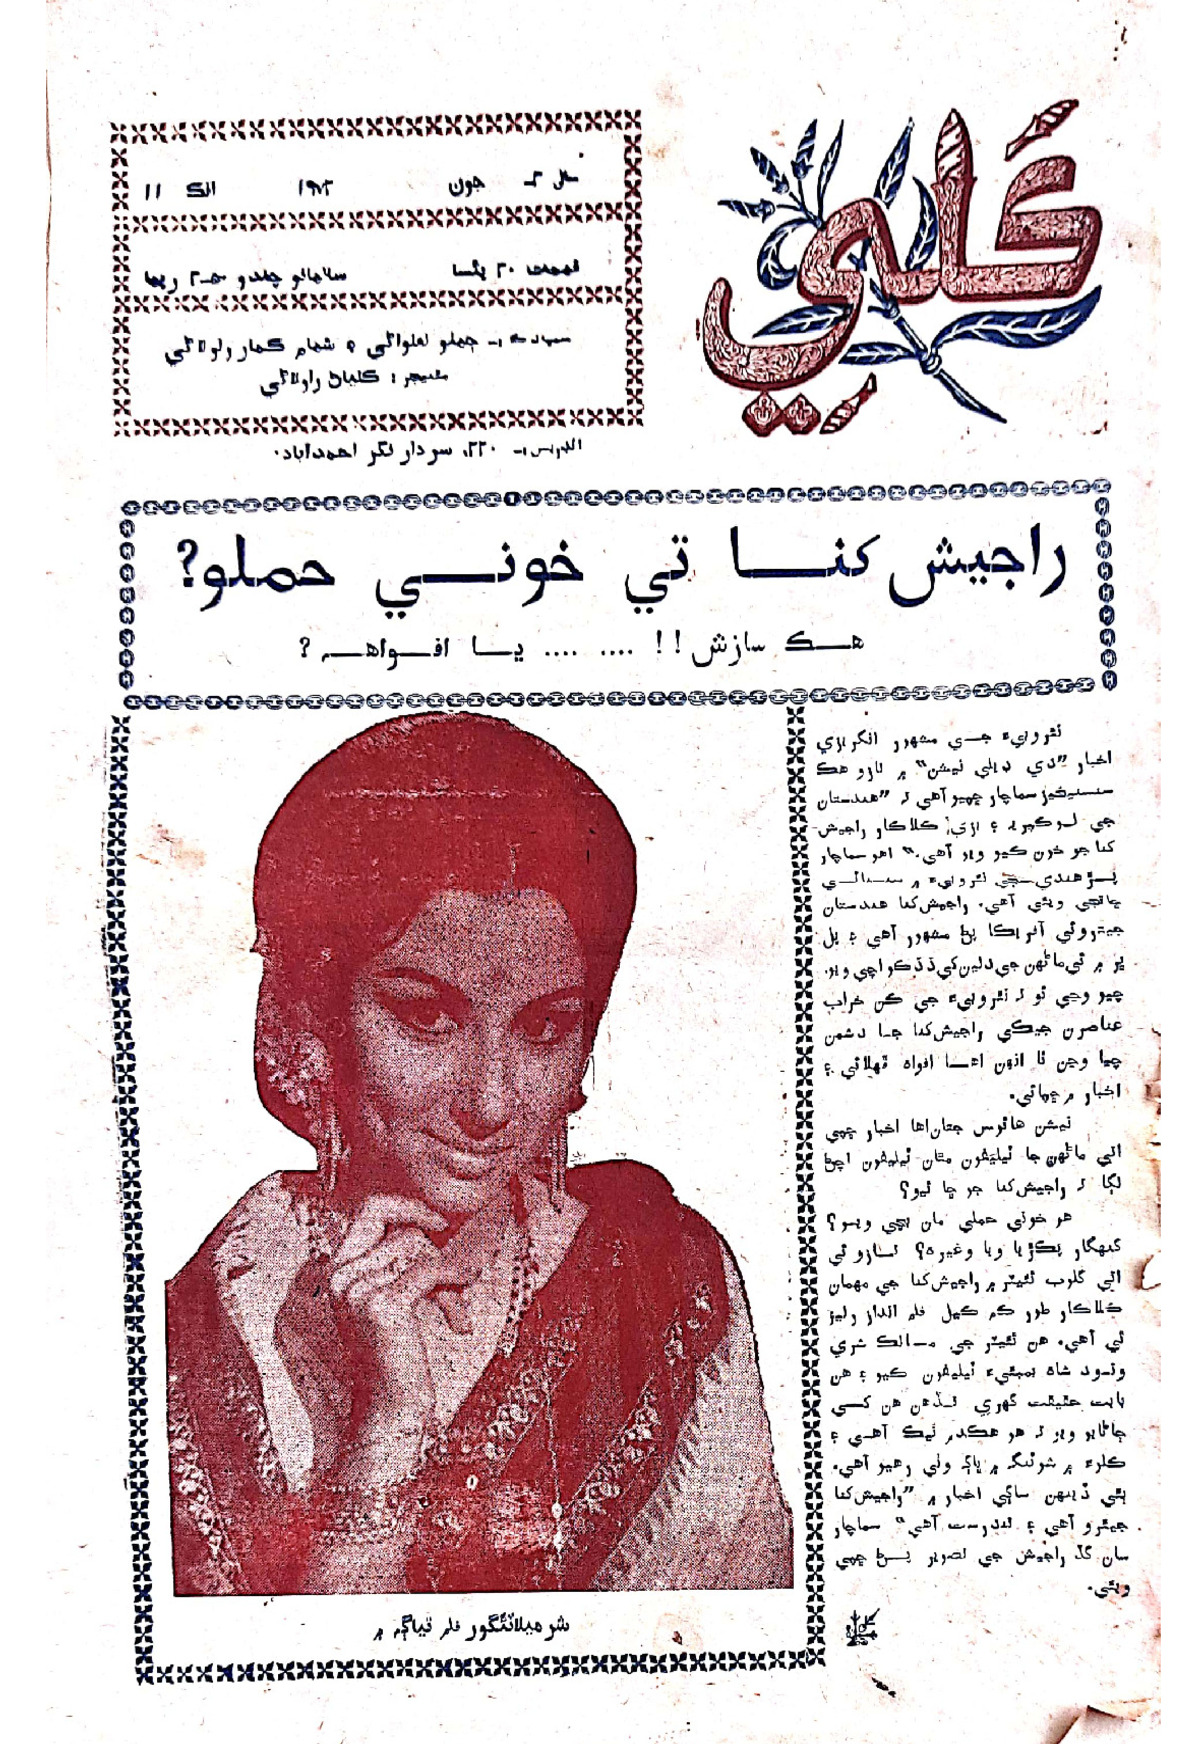 ڪَلي
سال ۲ـ جون ۱۹۷۲ انڪ ۱۱
قيمت ۲۰ پئسا سالاتو چندو ۲ـ۰۰ رپيا
سمپادڪ :ـ جملو لعلواڻي ۽ شمام ڪمار ولولاڻي
مئنيجر : ڪلياڻ راولاڻي
ائڊريس :ـ ۲۲۰، سردار نگر احمدآباد۰
راجيش کنا تي خوني حملو؟
هڪ سازش!! .... .... يا افواهه؟
نئروبيءَ جي مشهور انگريزي
اخبار ”دي ڊيلي نيشن“ ۾ تازو هڪ
سنسيخيز سماچار ڇپيو آهي ته ”هندستان
جي لوڪپريه ۽ ڪلاڪار راجيش
کنا جو خون ڪيو ويو آهي.“ اهو سماچار
پڙهندي سڄي نئروبيءَ ۾ سنسناٽي
ڇانئجي ويئي آهي. راجيش کنا هندستان
جيتروئي آفريڪا ۾ مشهور آهي ۽ پل
پر ۾ ئي ماڻهن جي دلين کي ڌڪ اچي ويو.
چيو وڃي ٿو ته نئروبيءَ جي ڪن خراب
عناصرن جيڪي راجيش کنا جا دشمن
چيا وڃن ٿا انهن اهـا افواه ڦهلائي ۽
اخبار ۾ ڇپائي.
نيشن هائوس جتان اها اخبار ڇپي
اتي ماڻهن جا ٽيليفون مٿان ٽيليفون اچڻ
لڳا ته راجيش کنا جو ڇا ٿيو؟
هو خوني حملي مان بچي ويو؟
گنهگار پڪڙيا ويا وغيره؟ تازو ئي
اتي گلوب ٿئيٽر ۾ راجيش کنا جي مهمان
ڪلاڪار طور ڪم ڪيل فلم انداز رليز
ٿي آهي. هن ٿئيٽر جي مالڪ شري
ونود شاه بمبئيءَ ٽيليفون ڪيو ۽ هن
بابت حقيقت گهري تڏهن هن کي
ڄاڻايو ويو ته هو هڪدم ٺيڪ آهي ۽
ڪلوءَ ۾ شوٽنگ ۾ ڀاڳ وٺي رهيو آهي.
ٻئي ڏينهن ساڳي اخبار ۾ ”راجيش کنا
جيئرو آهي ۽ تندرست آهي“ سماچار
سان گڏ راجيش جي تصوير پڻ ڇپي
ويئي.
شرميلا ٽئگور فلم تياڳ ۾